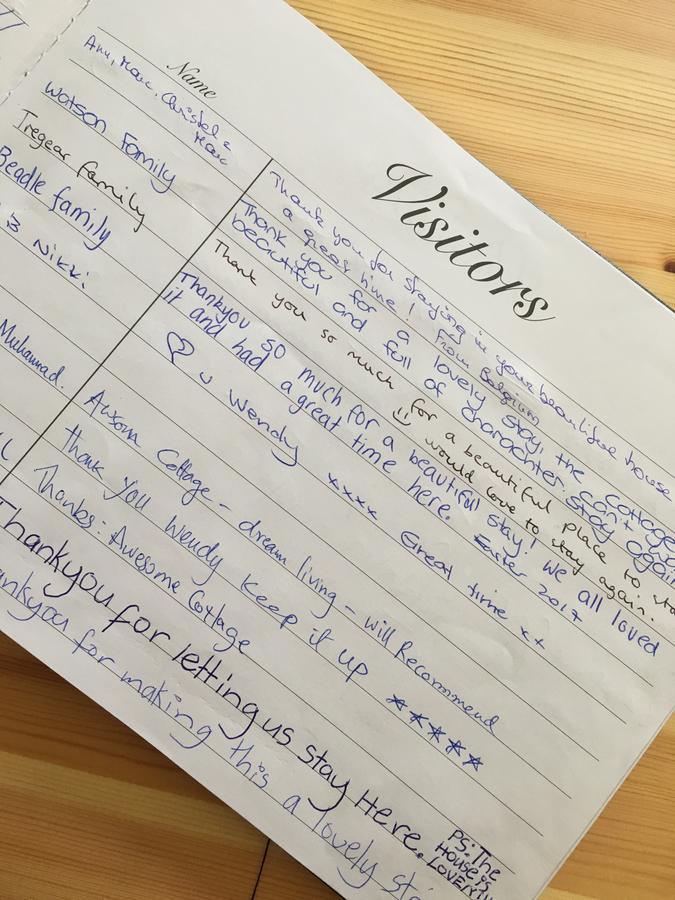 Visitors
Name
Ann, Marc, Christel &
Marc
Thank you for staying in your beautiful house
a great time! From Belgium
Watson Family
Thank you for a lovely stay, the cottage
beautiful and full of charachter. can't
stay again
Tregear family
Thank you so much for a beautiful place to
☺ would love to stay again.
Beadle family
Thankyou so much for a beautiful stay! We all loved
it and had a great time here. Easter 2017
B Nikki
♡ u Wendy xxxx Great time xx
Muhammad.
Awsom Cottage - dream living - will Recommend
Thank you Wendy keep it up *****
Thanks: Awesome Cottage
Thankyou for letting us stay Here.
PS: The
House is
LOVELY!!
for making this a lovely